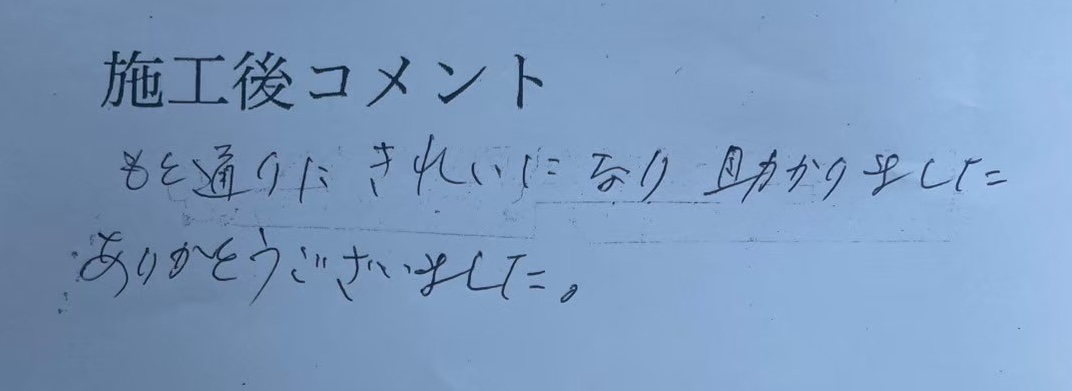 施工後コメント
もと通りに きれいに なり 助かりました
ありがとうございました。